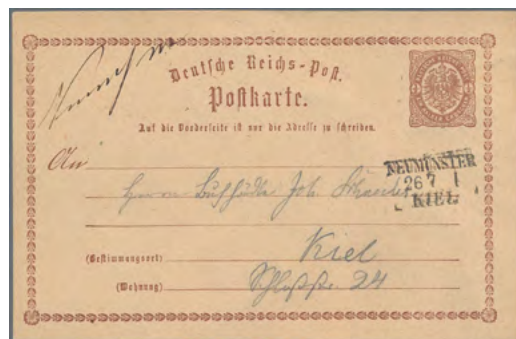 Deutsche Reichs-Post.
Postkarte.
Auf die Vorderseite ist nur die Adresse zu schreiben.
NEUMÜNSTER
26 7 I
KIEL
An
Herrn Joh.
Kiel
(Bestimmungsort)
Schloßstr. 24
(Wohnung)